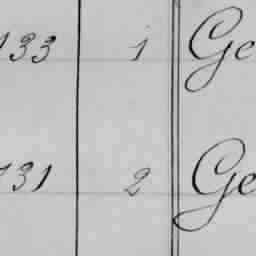 133 1 Ge
731 2 Ge